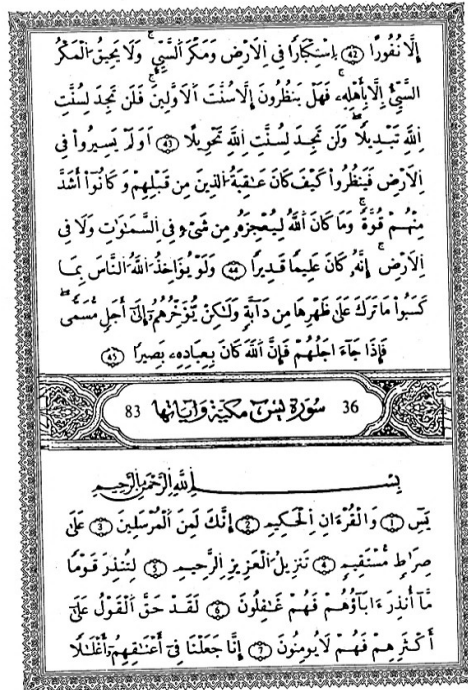 إِلَّا نُفُورًا ٤٢ اِسْتِكْبَارًا فِى اِلَارْضِ وَمَكْرَ اَلسَّيِّےِٕ وَلَا يَحِيقُ اُلْمَكْرُ
اُلسَّيِّئُ إِلَّا بِأَهْلِهِۦ فَهَلْ يَنظُرُونَ إِلَّا سُنَّتَ اَلَاوَّلِينَ فَلَن تَجِدَ لِسُنَّتِ
اِللَّهِ تَبْدِيلًا وَلَن تَجِدَ لِسُنَّتِ اِللَّهِ تَحْوِيلًا ٤٣ اَوَلَمْ يَسِيرُوا۟ فِى
اِلَارْضِ فَيَنظُرُوا۟ كَيْفَ كَانَ عَـٰقِبَةُ اُلذِينَ مِن قَبْلِهِمْ وَكَانُوٓا۟ أَشَدَّ
مِنْهُمْ قُوَّةً وَمَا كَانَ اَللَّهُ لِيُعْجِزَهُۥ مِن شَىْءٍ فِى اِلسَّمَـٰوَٰتِ وَلَا فِى
اِلَارْضِ إِنَّهُۥ كَانَ عَلِيمًا قَدِيرًا ٤٤ وَلَوْ يُؤَاخِذُ اُللَّهُ اُلنَّاسَ بِمَا
كَسَبُوا۟ مَا تَرَكَ عَلَىٰ ظَهْرِهَا مِن دَآبَّةٍ وَلَـٰكِنْ يُّؤَخِّرُهُمُۥٓ إِلَىٰٓ أَجَلٍ مُّسَمًّى
فَإِذَا جَآءَ اجَلُهُمْ فَإِنَّ اَللَّهَ كَانَ بِعِبَادِهِۦ بَصِيرًا ٤٥
36 سُورَة يٓسٓ مكيّة وءاياتها 83
بِسْمِ اِللَّهِ اِلرَّحْمَـٰنِ اِلرَّحِيمِ
يَسٓ ١ وَالْقُرْءَانِ اِلْحَكِيمِ ٢ إِنَّكَ لَمِنَ اَلْمُرْسَلِينَ ٣ عَلَىٰ
صِرَٰطٍ مُّسْتَقِيمٍ ٤ تَنزِيلُ اُلْعَزِيزِ اِلرَّحِيمِ ٥ لِتُنذِرَ قَوْمًا
مَّآ أُنذِرَ ءَابَآؤُهُمْ فَهُمْ غَـٰفِلُونَ ٦ لَقَدْ حَقَّ اَلْقَوْلُ عَلَىٰٓ
أَكْثَرِهِمْ فَهُمْ لَا يُومِنُونَ ٧ إِنَّا جَعَلْنَا فِىٓ أَعْنَـٰقِهِمُۥٓ أَغْلَـٰلًا